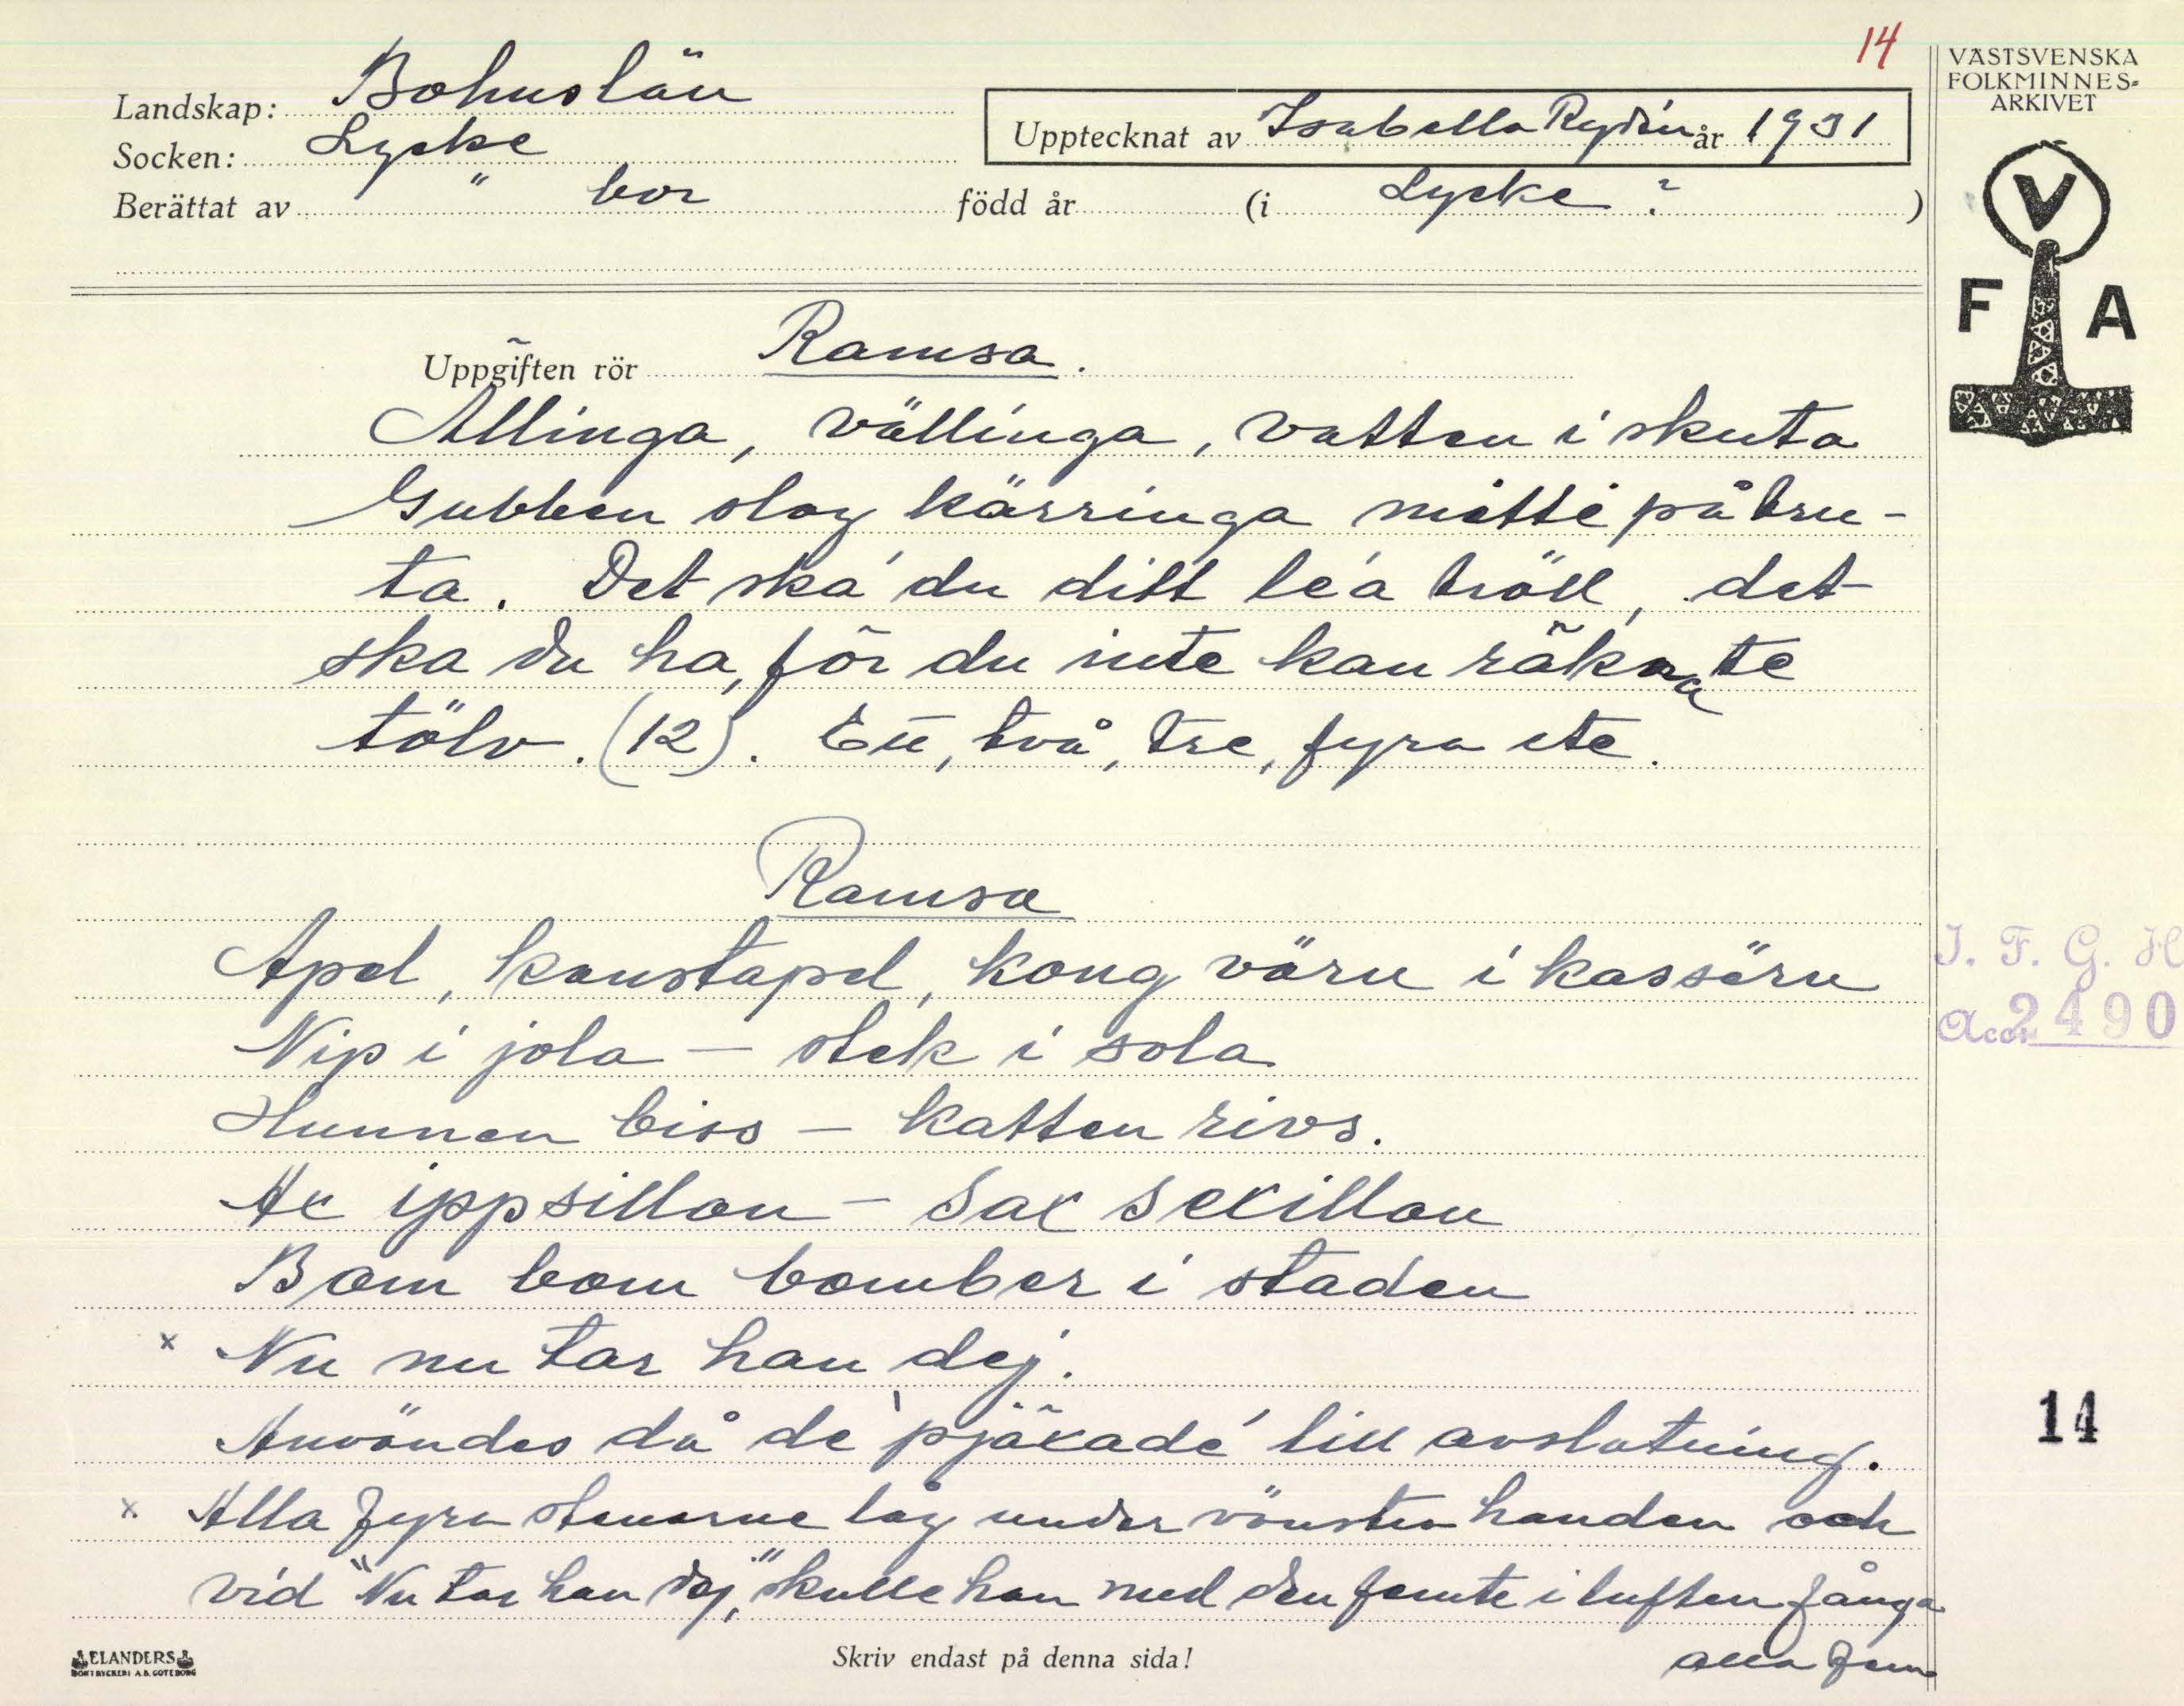 14
VÄSTSVENSKA
FOLKMINNES-
ARKIVET
Landskap: Bohuslän
Upptecknat av Isabella Rydén år 1931
Socken: Lycke
Berättat av " bor född år (i Lycke ? )
V
F A
Uppgiften rör Ramsa.
Allinga, vällinga, vatten i skuta
Gubben slog kärringa mitti på tru-
ta. Det ska du ditt le'a tröll, det
ska du ha, för du inte kan räkna te
tölv. (12). Ett, två, tre, fyra etc.
Ramsa
Apel, konstapel, kong värn i kassärn
Nip i jola – stek i sola
Hunnen biss – katten rivs.
Ax ippsillon – sax sexillon
Bom bom bomber i staden
x Nu nu tar han dej.
Användes då de 'pjäxade' till avslutning.
x Alla fyra stenarne låg under vänstra handen och
vid "Nu tar han dej," skulle han med den femte i luften fånga
alla fem
I. F. G. H
Acc. 2490
14
ELANDERS
BOKTRYCKERI A.B. GÖTEBORG
Skriv endast på denna sida!